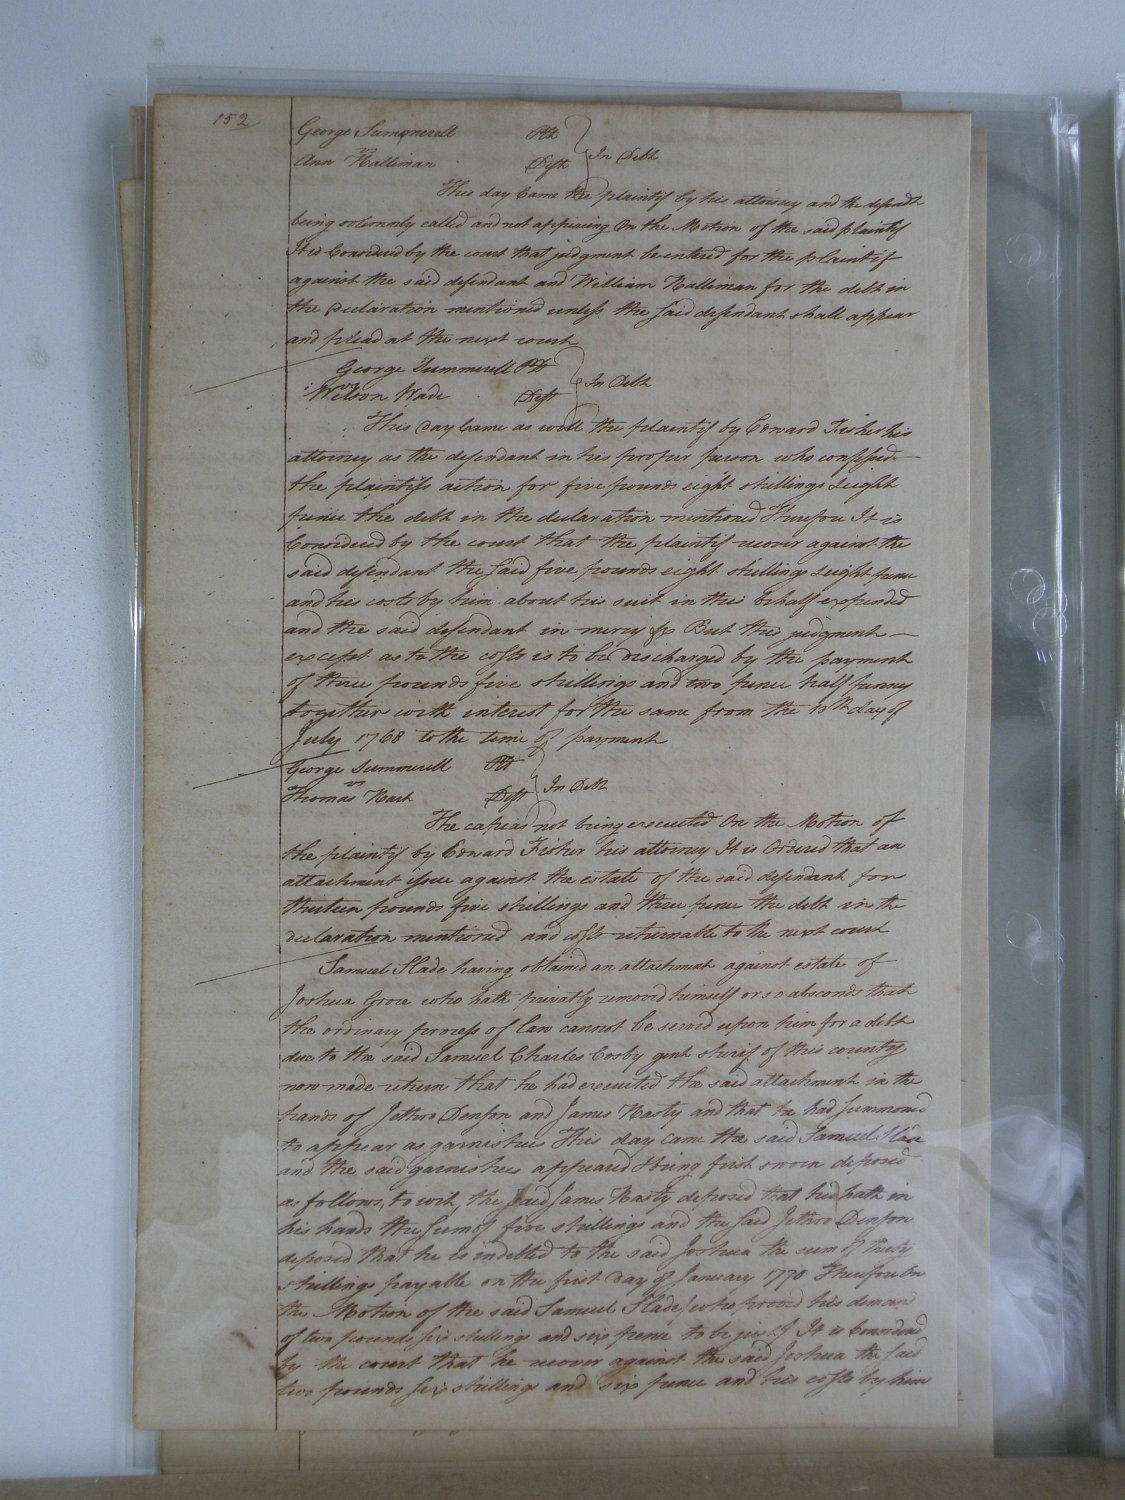 152
George Summerell Plt
Ann Halliman Deft } In Debt
This day Came the plaintif by his attorney and the defendt
being solemnly called and not appearing On the Motion of the said plaintif
It is Considered by the court that judgment be entered for the plaintif
against the said defendant and William Halliman for the debt in
the declaration mentioned unless the said defendant shall appear
and plead at the next court
George Summerell Plt
vs
Wilson Wade Deft } In Debt
This Day Came as well the plaintif by Edward Fisher his
attorney as the defendant in his proper person who confessed
the plaintifs action for five pounds eight shillings & eight
pence the debt in the declaration mentioned Therefore It is
Considered by the court that the plaintif recover against the
said defendant the said five pounds eight shillings & eight pence
and his costs by him about his suit in this behalf expended
and the said defendant in mercy &c But this judgment
except as to the costs is to be discharged by the payment
of three pounds five shillings and two pence half penny
together with interest for the same from the 13th day of
July 1768 to the time of payment
George Summerell Plt
vs
Thomas Hart Deft } In Debt
The capias not being executed On the Motion of
the plaintif by Edward Fisher his attorney It is Ordered that an
attachment issue against the estate of the said defendant for
thirteen pounds five shillings and three pence the debt in the
declaration mentioned and costs returnable to the next court
Samuel Slade having obtained an attachment against estate of
Joshua Grove who hath privatly removed himself or so absconds that
the ordinary process of law cannot be served upon him for a debt
due to the said Samuel Charles Cosby gent sherif of this county
now made return that he had executed the said attachment in the
hands of Jethro Denson and James Hasty and that he had summoned
to appear as garnishees This day came the said Samuel Slade
and the said garnishees appeared & being first sworn deposed
as follows, to wit, the said James Hasty deposed that he hath in
his hands the sum of five shillings and the said Jethro Denson
deposed that he is indebted to the said Joshua the sum of thirty
shillings payable on the first day of January 1770 Therefore On
the Motion of the said Samuel Slade who proved his demand
of two pounds six shillings and six pence to be just It is Considered
by the court that he recover against the said Joshua the said
two pounds six shillings and six pence and his costs by him